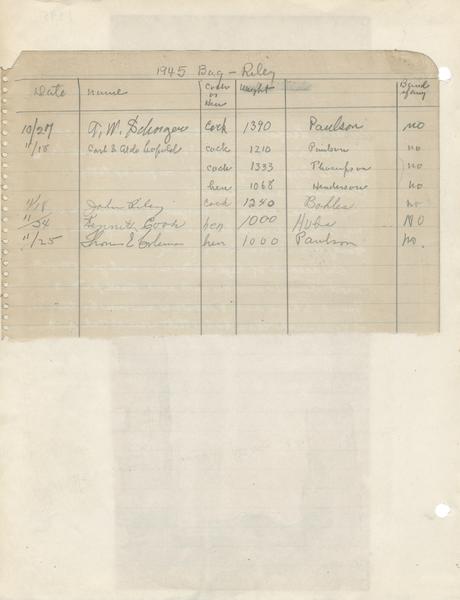 1945 Bag - Riley
Date Name Cock or Hen Weight Band if any
10/27 A. W. Schorger Cock 1390 Paulson no
11/18 Carl & Aldo Leopold cock 1210 Paulson no
cock 1333 Thompson no
hen 1068 Henderson no
11/18 John Riley cock 1240 Bohles no
11/24 Kenneth Cook hen 1000 no
11/25 Thomas E Coleman hen 1000 Paulson no.